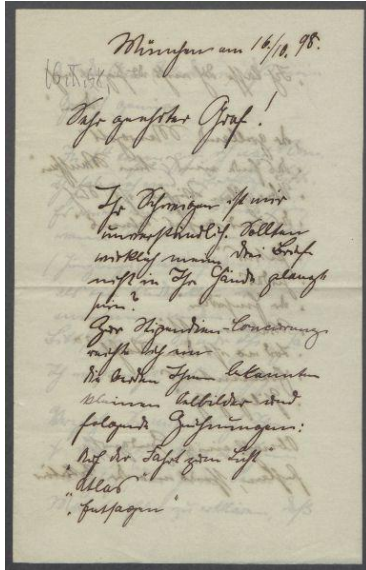 München am 16./10. 98.
Sehr geehrter Graf!
Ihr Schweigen ist mir
unverständlich. Sollten
wirklich meine drei Briefe
nicht in Ihre Hände gelangt
sein?
Zur Stipendien-Concurrenz
reichte ich ein
die beiden Ihnen bekannten
kleinen Oelbilder und
folgende Zeichnungen:
"Auf der Fahrt zum Licht"
"Atlas"
"Entsagen"